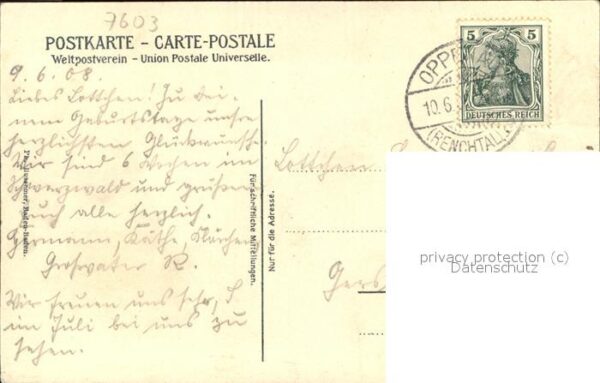 7603
POSTKARTE – CARTE-POSTALE
Weltpostverein – Union Postale Universelle.
9.6.08.
Liebes Lottchen! Zu dei-
nem Geburtstage unsre
herzlichsten Glückwünsche.
Wir sind 6 Wochen im
Schwarzwald und grüßen
euch alle herzlich.
Käthe,
Grosvater R.
Wir freuen uns sehr,
im Juli bei uns zu
sehen.
Für schriftliche Mitteilungen.
Nur für die Adresse.
5 5
DEUTSCHES REICH
OPPENAU
10.6.
(RENCHTAL)
Lottchen
Gers
privacy protection (c)
Datenschutz